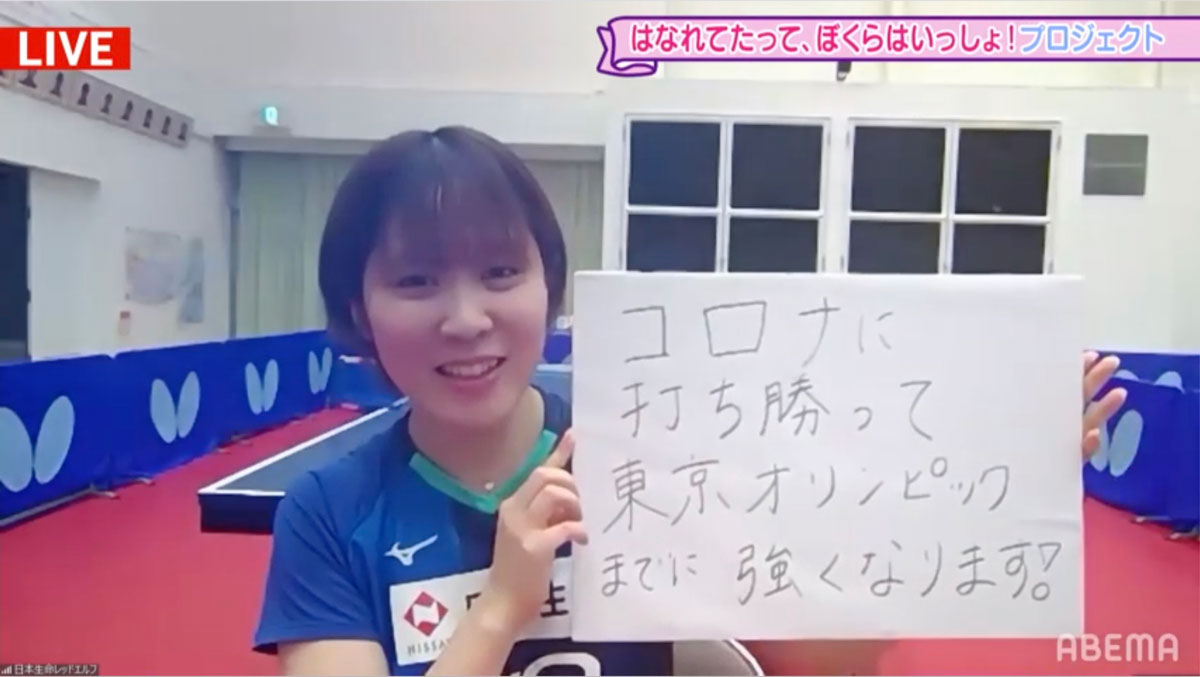 LIVE
はなれてたって、ぼくらはいっしょ!プロジェクト
コロナに
打ち勝って
東京オリンピック
までに 強くなります!
日本生命レッドエルフ
ABEMA